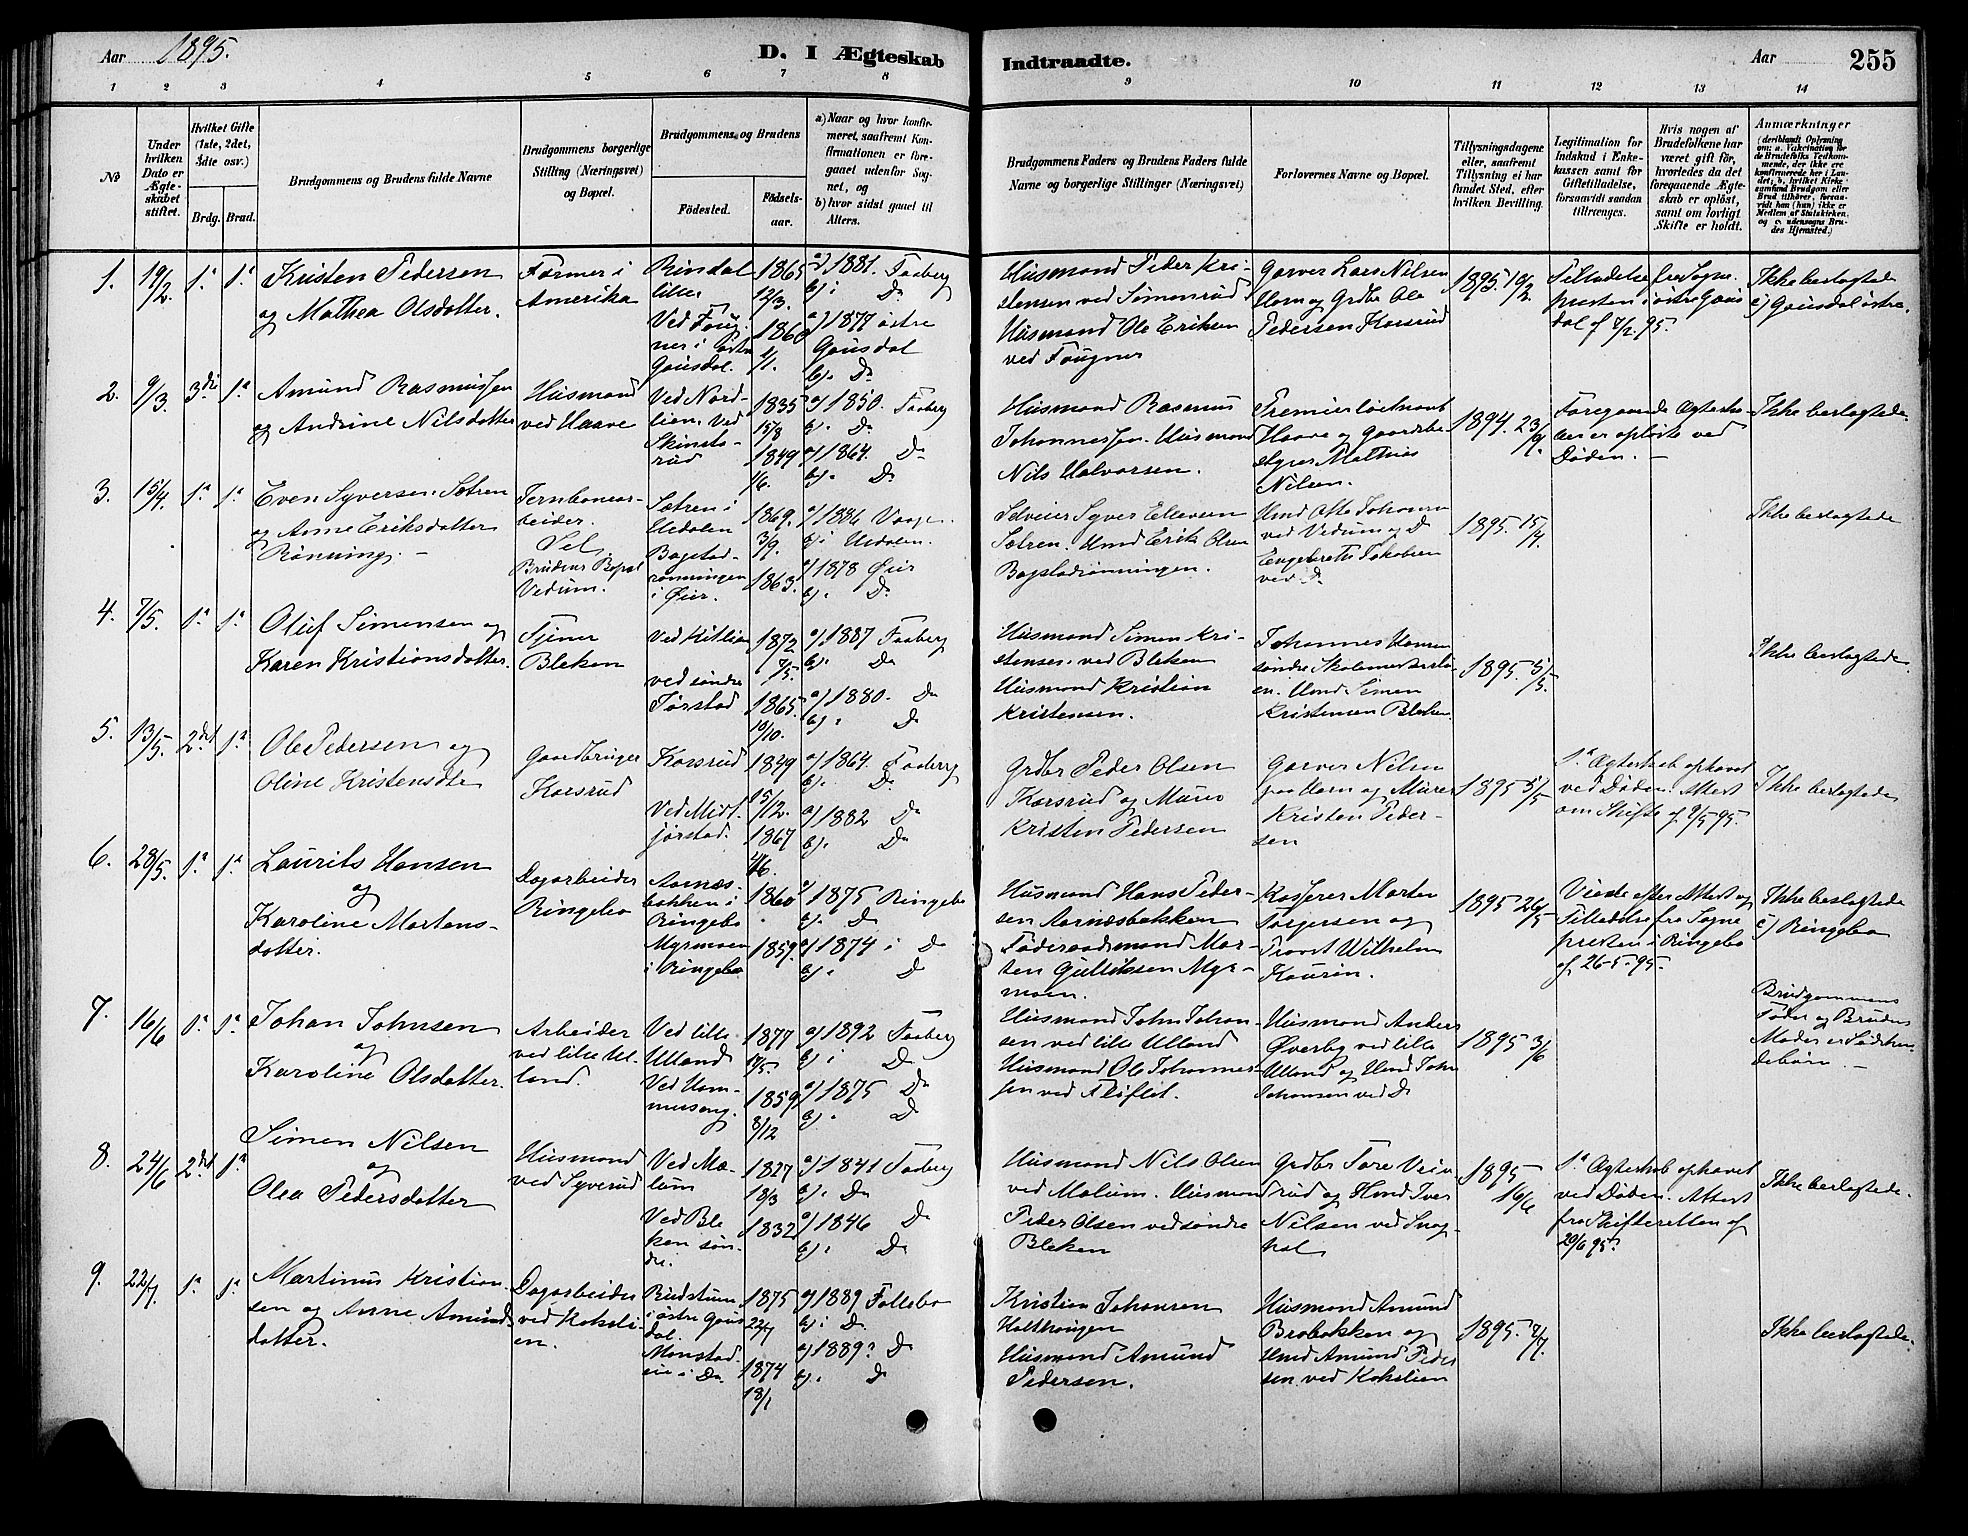 Aar 1895.
D. I Ægteskab Indtraadte.
Aar
255
1 2 3 4 5 6 7 8 9 10 11 12 13 14
No
Under hvilken Dato er Ægteskabet stiftet.
Hvilket Gifte (1ste, 2det, 3dte osv.)
Brdg. Brud.
Brudgommens og Brudens fulde Navne
Brudgommens borgerlige Stilling (Næringsvei) og Bopæl.
Brudgommens og Brudens
Fødested.
Fødselsaar.
a) Naar og hvor konfirmeret, saafremt Konfirmationen er foregaaet udenfor Sognet, og
b) hvor sidst gaaet til Alters.
Brudgommens Faders og Brudens Faders fulde Navne og borgerlige Stillinger (Næringsvei)
Forlovernes Navne og Bopæl.
Tillysningsdagene eller, saafremt Tillysning ei har fundet Sted, efter hvilken Bevilling.
Legitimation for Indskud i Enkekassen samt for Giftetilladelse, forsaavidt saadan tiltrænges.
Hvis nogen af Brudefolkene har været gift før, hvorledes da det foregaaende Ægteskab er opløst, samt om lovligt Skifte er holdt.
Anmærkninger
(deriblandt Oplysning om: a. Vakcination for de Brudefolks Vedkommende, der ikke ere konfirmerede her i Landet; b. hvilket Kirkesamfund Brudgom eller Brud tilhører, forsaavidt han (hun) ikke er Medlem af Statskirken, og c. udensogns Brudes Hjemsted.)
1. 19/2. 1ª 1ª
Kristen Pedersen
og Mathea Olsdatter.
Farmer i
Amerika
Rindal
lille
Ved Foug-
ner i Østre
Gausdal.
1865
12/3.
1860
1/1.
a) 1881. Faaberg
b) i Do
a) 1877 østre
Gausdal
b). Do
Husmand Peder Kri-
stensen ved Simenrud
Husmand Ole Eriksen
ved Fougner
Garver Lars Nilsen
Horn og Grdbr Ole
Pedersen Korsrud
1895. 10/2.
Tilladelse fra Sogne-
presten i østre Gaus
dal af 7/2. 95.
Ikke beslægtede
c) Gausdal østre.
2. 9/3. 3die 1ª
Amund Rasmussen
og Andrine Nilsdatter
Husmand
ved Haave
Ved Nord-
lien. Ved
Skinds-
rud
1835
15/8
1849
1/6.
a) 1850. Faaberg
b). Do
a) 1864. Do
b). Do
Husmand Rasmus
Johannessen. Husmand
Nils Halvorsen.
Premierløitnant
Haave og Gaardbe-
styrer Mathias
Nilsen.
1894. 23/9.
Foregaaende Ægteska-
ber er opløste ved
Døden. —
Ikke beslægtede
3. 15/4. 1ª 1ª
Even Syversen Sætren
og Anne Eriksdatter
Rønning. —
Jernbanear-
beider.
Sel,
Brudens Bopæl
Vedum.
Sætren i
Hedalen
Bagstad-
rønningen
i Øier.
1869.
3/9.
1863.
a) 1886 Vaage
b) i Hedalen.
a) 1878 Øier
b). Do
Selveier Syver Ellevsen
Sætren. Hmd Erik Olsen
Bagstadrønningen.
Hmd Otto Johansen
ved Vedum og Do
Engebreth Jakobsen
ved Do
1895. 15/4.
Ikke beslægtede
4. 7/5. 1ª 1ª
Oluf Simensen og
Karen Kristiansdatter.
Tjener
Bleken
Ved Kitlien
ved søndre
Jørstad
1872
7/5.
1865.
10/10.
a) 1887 Faaberg
b). Do
a) 1880. Do
b). Do
Husmand Simen Kri-
stensen ved Bleken
Husmand Kristian
Kristensen.
Johannes Hansen
søndre
en. Hmd Simen
Kristensen Bleken
1895. 5/5.
Ikke beslægtede.
5. 13/5. 2det 1ª
Ole Pedersen og
Oline Kristensdtr
Gaardbruger
Korsrud
Korsrud
Ved Midt-
jørstad.
1849
25/12.
1867
4/6.
a) 1864. Faaberg
b). Do
a) 1882 Do
b). Do
Grdbr Peder Olsen
Korsrud og Murer
Kristen Pedersen
Garver Nilsen
paa Horn og Murer
Kristen Peder-
sen
1895 5/5
1ª Ægteskab ophævet
ved Døden. Attest
om Skifte af 9/5 95.
Ikke beslægtede
6. 28/5. 1ª 1ª
Laurits Hansen
og
Karoline Mortens-
datter.
Dagarbeider
Ringebo
Aarnæs-
bakken i
Ringebo
Myrmoen
i Ringebo
1860
1859.
a) 1875 Ringebo
b). Do
a) 1874 i Do
b). Do
Husmand Hans Peder-
sen Aarnæsbakken
Føderaadsmand Mor-
ten Gulliksen Myr-
moen.
Kasserer Morten
Torgersen og
Provst Wilhelm
Kaurin.
1895 26/5
Viede efter Attest og
Tilladelse fra Sogne
presten i Ringebo
af 26-5-95.
Ikke beslægtede
c) Ringebo
7. 16/6 1ª 1ª
Johan Johnsen
og
Karoline Olsdatter.
Arbeider
ved lille Ul-
land.
Ved lille
Ulland
Ved Ham-
mereng.
1877
17/5.
1859
8/12
a) 1892 Faaberg
b) i Do
a) 1875 Do
b). Do
Husmand John Johan-
sen ved lille Ulland
Husmand Ole Johannes-
sen ved Fløflot.
Husmand Anders
Øverby ved lille
Ulland og Hmd John
Johansen ved Do
1895 3/6
Brudgommens
Fader og Brudens
Moder er Sødsken-
debørn. —
8. 24/6 2det 1ª
Simen Nilsen
og
Olea Pedersdatter
Husmand
ved Syverud
Ved Mæ-
lum
Ved Ble
ken søn-
dre.
1827
18/3
1832
a) 1841 Faaberg
b). Do
a) 1846 Do
b). Do
Husmand Nils Olsen
ved Mælum. Husmand
Peder Olsen ved søndre
Bleken
Grdbr Tore
rud og Hmd Iver
Nilsen ved
1895
16/6
1ª Ægteskab ophævet
ved Døden. Attest
fra Skifteretten af
20/6 95.
Ikke beslægtede.
9. 22/7. 1ª 1ª
Martinus Kristian-
sen og Anne Amunds-
datter.
Dagarbeider
ved Koksli-
en.
Rudstuen
i østre Gaus
dal.
Monstad-
eie i Do.
1875
22/7
1874
18/1
a) 1889 Follebo
b) i Do
a) 1889? Do
b). Do
Kristian Johansen
Holthaugen
Husmand Amund
Pedersen.
Husmand Amund
Brobakken og
Hmd Amund Peder
sen ved Kokslien
1895. 7/7.
Ikke beslægtede.